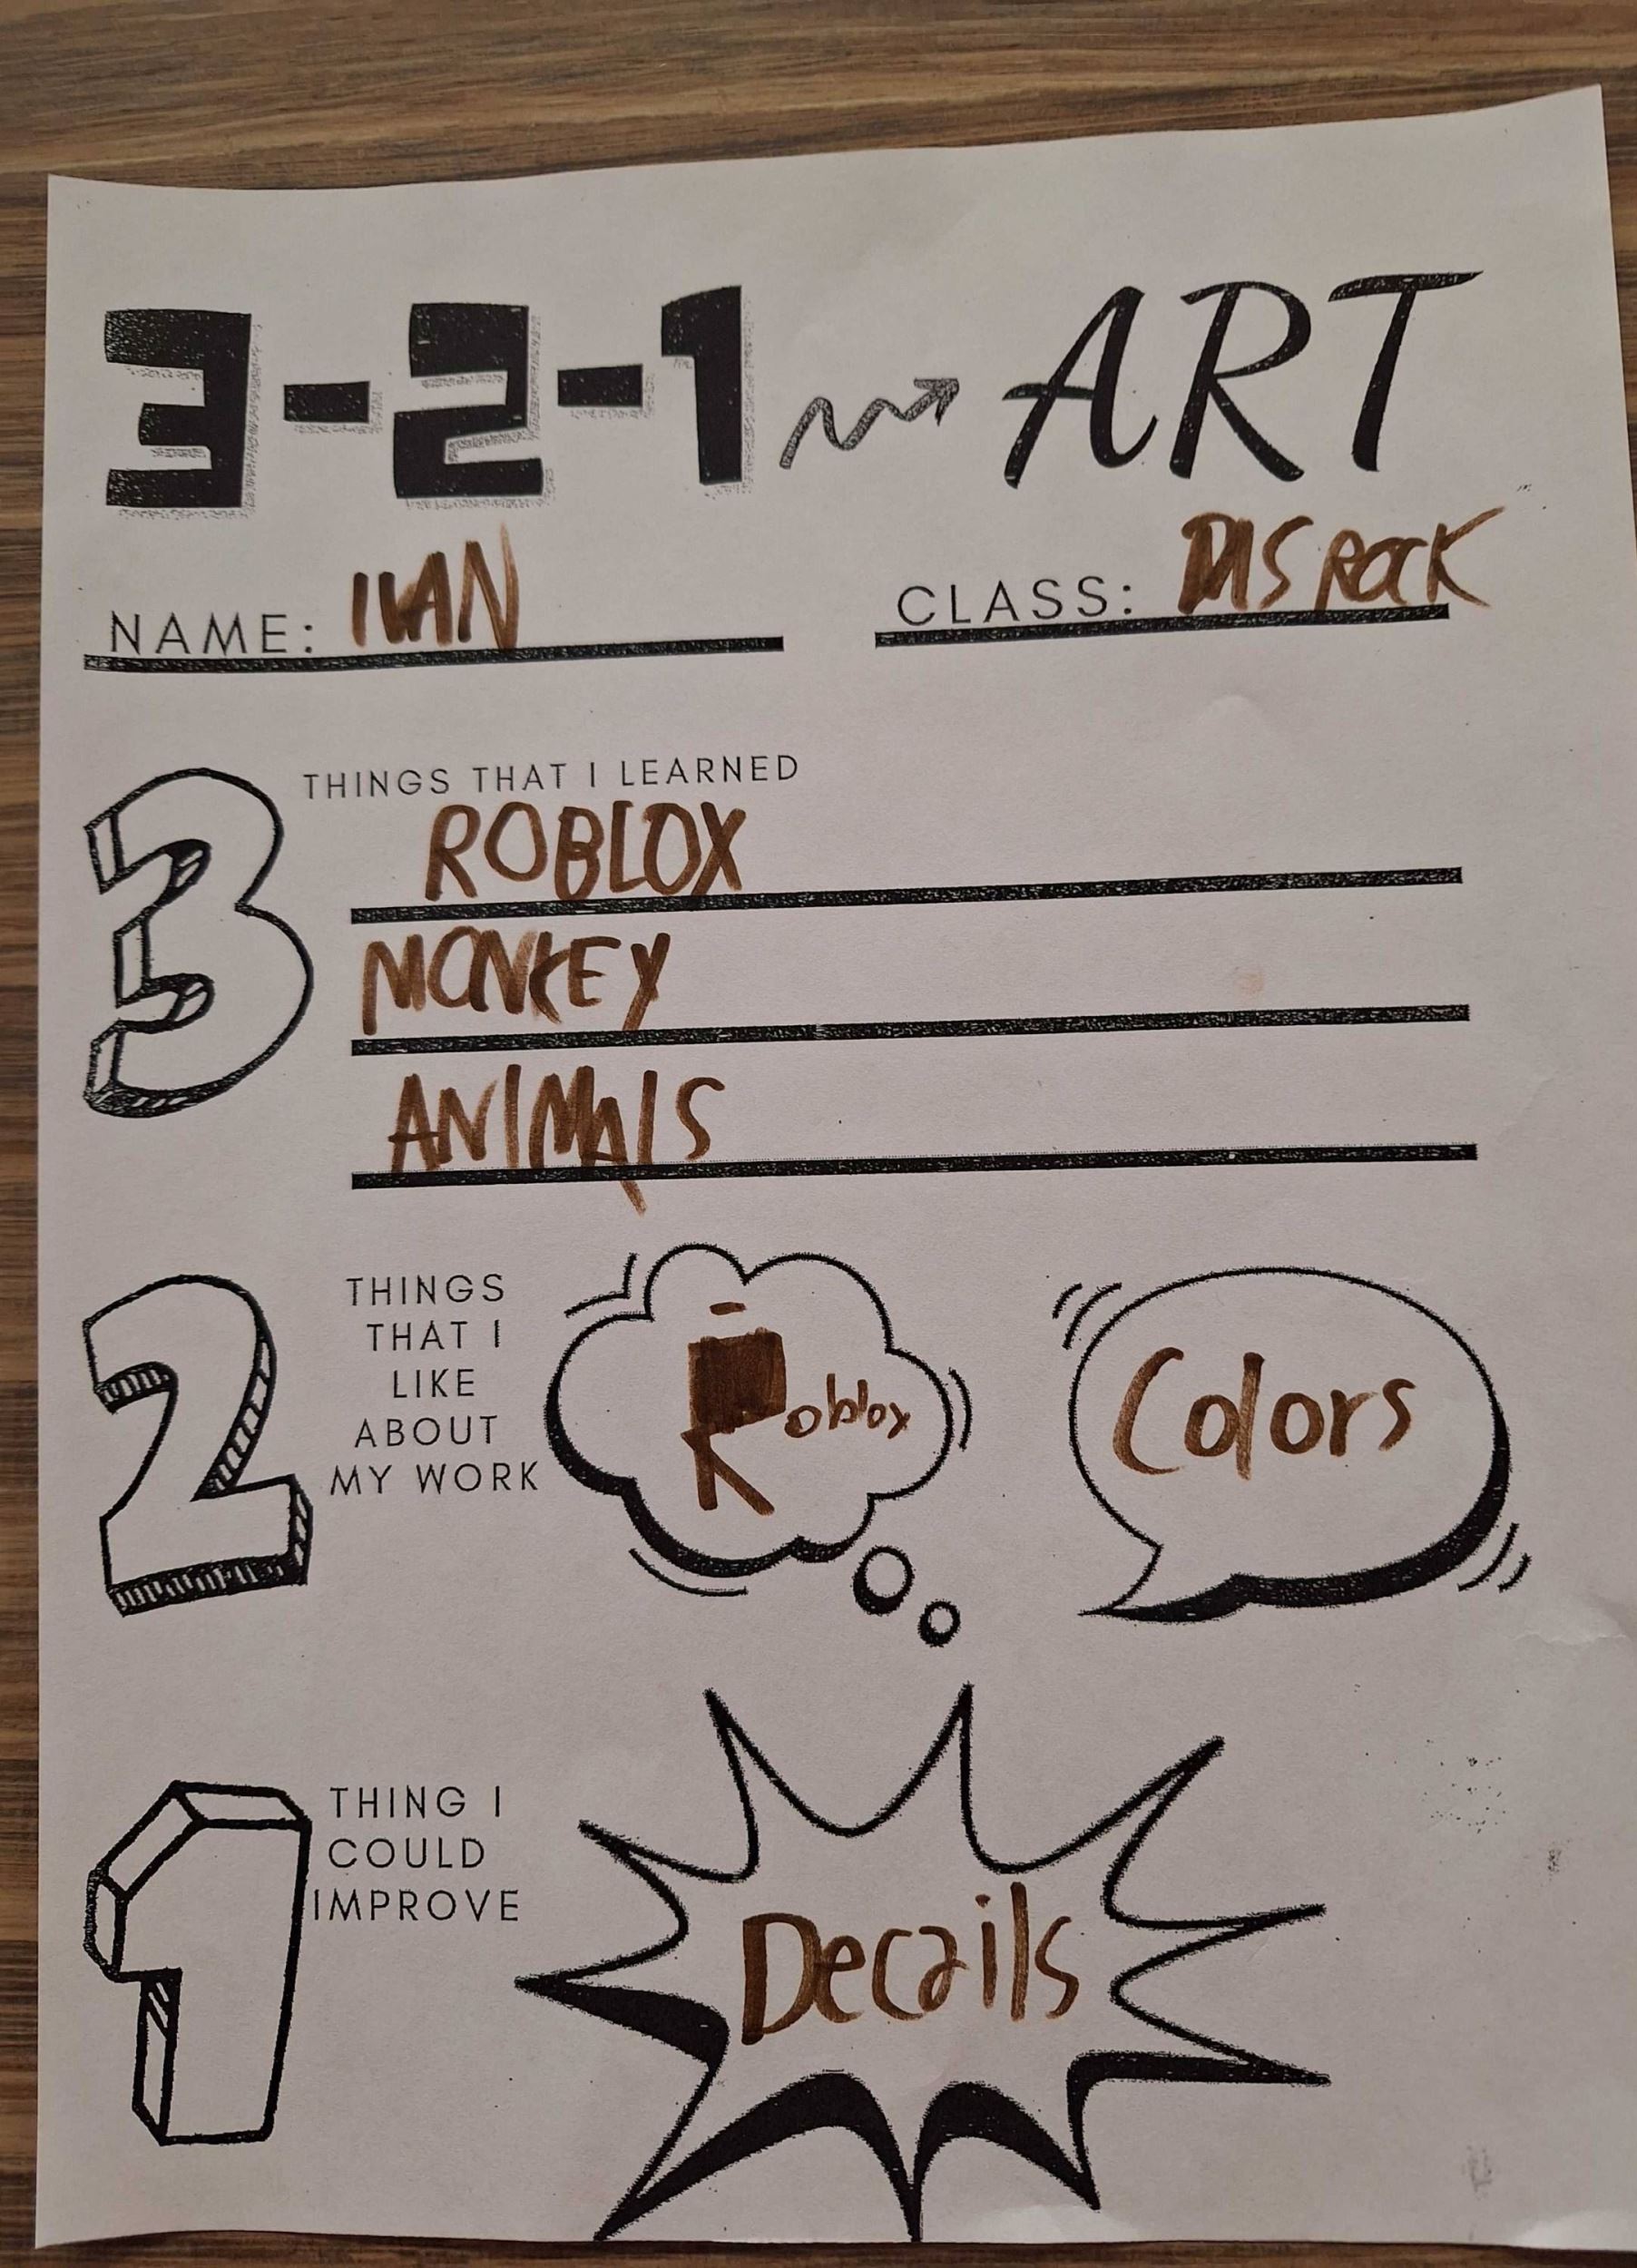 3-2-1 ART
NAME: IVAN CLASS: DISROCK
3 THINGS THAT I LEARNED
ROBLOX
MONKEY
ANIMALS
2 THINGS
THAT I
LIKE
ABOUT
MY WORK
Roblox
Colors
1 THING I
COULD
IMPROVE
Decails